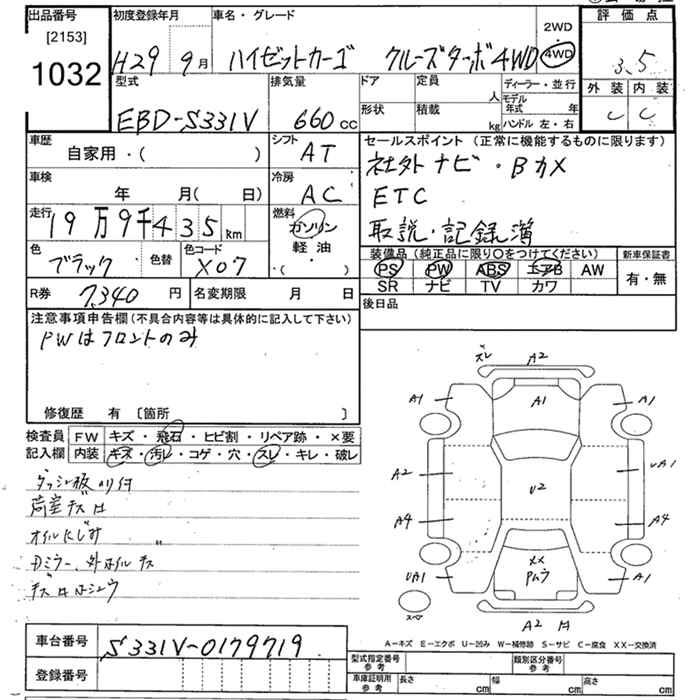 出品番号 初度登録年月 車名・グレード 2WD 4WD 評価点
[2153]
1032 H29 9月 ハイゼットカーゴ クルーズターボ4WD 3.5
型式 排気量 ドア 定員 人 ディーラー・並行 外装 内装
EBD-S331V 660cc 形状 積載 kg モデル年式 年 C C
ハンドル 左・右
車歴 シフト セールスポイント (正常に機能するものに限ります)
自家用・( ) AT 社外ナビ・Bカメ
車検 冷房 ETC
年 月( 日) AC 取説・記録簿
走行 燃料
19万9千435km ガソリン
軽油
・( )
色 色替 色コード 装備品 (純正品に限り○をつけてください) 新車保証書
ブラック X07 PS PW ABS エアB AW 有・無
SR ナビ TV カワ
R券 7,340円 名変期限 月 日 後日品
注意事項申告欄 (不具合内容等は具体的に記入して下さい)
PWはフロントのみ
修復歴 有 [箇所 ]
検査員 FW キズ・飛石・ヒビ割・リペア跡・×要
記入欄 内装 キズ・汚レ・コゲ・穴・スレ・キレ・破レ
荷室キズ
オイルにじみ
ズレ A2
A1 A1 A1
A2 U2 UA1
A4 A4
UA1 XX A1
A2
A-キズ E-エクボ U-凹み W-補修跡 S-サビ C-腐食 XX-交換済
車台番号 S331V-0179719
登録番号
型式指定番号 参考 類別区分番号 参考
車庫証明用 参考 長さ cm 幅 cm 高さ cm